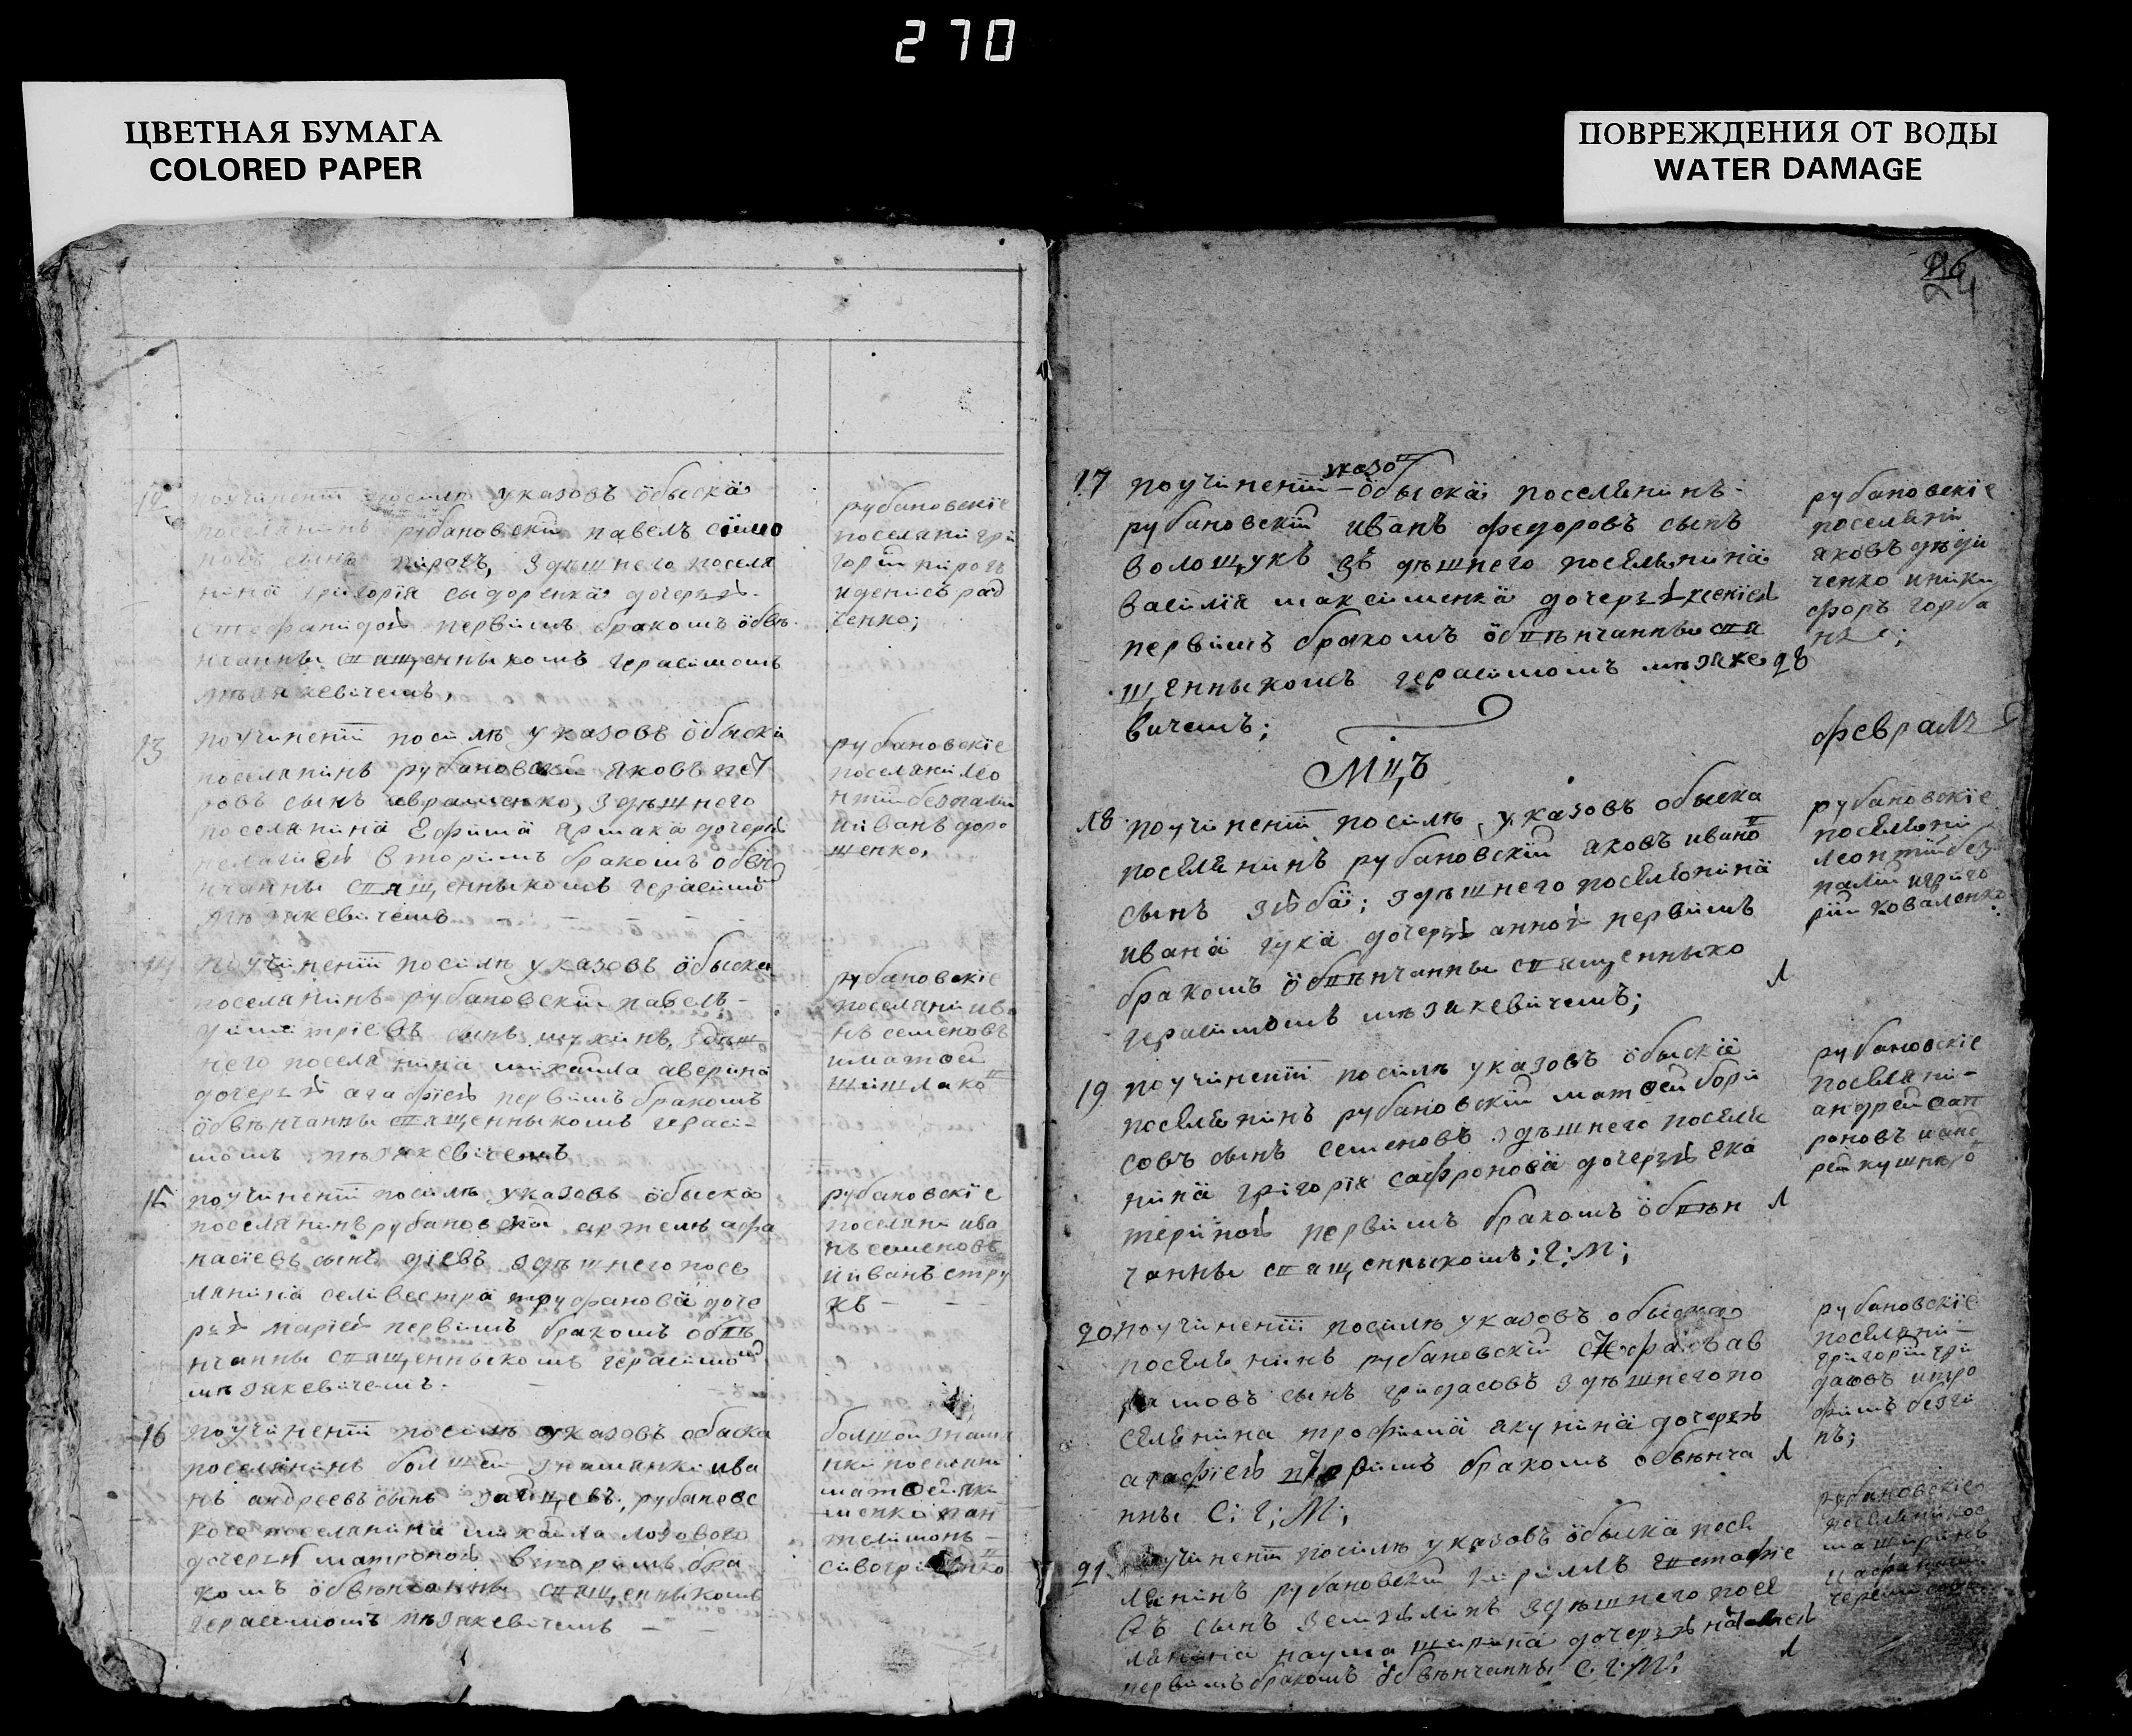 270
ЦВЕТНАЯ БУМАГА
COLORED PAPER
ПОВРЕЖДЕНИЯ ОТ ВОДЫ
WATER DAMAGE
24
12
поучиненіи посилѣ указовъ обыска
поселянинъ рубановскій павелъ симо
новъ сынъ пирогъ, здѣшнего поселя
нина григорія сыдоренка дочерью
стефанидой первимъ бракомъ обвѣ
нчанны сщященныкомъ герасимомъ
мѣзякевичемъ,
рубановскіе
поселяни гри
горій пирогъ
иденисъ рад
ченко;
13
поучиненіи посилѣ указовъ обыска
поселянинъ рубановскій яковъ пет
ровъ сынъ авраменко, здѣшнего
поселянина Ефима ярмака дочерей
пелагией вторимъ бракомъ обвѣ
нчанны сщященныкомъ герасимом
мѣзякевичемъ
рубановскіе
поселяни лео
нтий безпали
ииванъ доро
шенко,
14
поучиненіи посилѣ указовъ обыска
поселянинъ рубановскій павелъ
димитріевъ сынъ здѣш
него поселянина михаила аверина
дочерей агафіей первимъ бракомъ
обвѣнчанны сщященныкомъ гераси
момъ мѣзякевичемъ
рубановскіе
поселяни ива
нъ семеновъ
иматвей
шишлако
15
поучиненіи посилѣ указовъ обыска
поселянинъ рубановскій артемъ афа
насіевъ сынъ діевъ здѣшнего посе
лянина селивестра труфанова доче
рей маріей первимъ бракомъ обвѣ
нчанны сщященныкомъ герасимом
мѣзякевичемъ
рубановскіе
поселяни ива
нъ семеновъ
ииванъ стру
къ
16
поучиненіи посилѣ указовъ обыска
поселянинъ болшей знаменки ива
нъ андреевъ сынъ зайцевъ, рубановс
кого поселянина михаила лозового
дочерей матроной вторимъ бра
комъ обвѣнчанны сщященныкомъ
герасимомъ мѣзякевичемъ
болшой знаме
нки поселяни
матвей
пан
телимонъ
17
поучиненіи указо обыска поселянинъ
рубановскій иванъ федоровъ сынъ
волощукъ здѣшнего поселянина
василія максименка дочерей ксеніей
первимъ бракомъ обвѣнчанны сщя
щенныкомъ герасимомъ мѣзяке
вичемъ;
рубановскіе
поселяни
яковъ дѣди
ченко иники
форъ горба
28
Мцъ
февраль
18
поучиненіи посилѣ указовъ обыска
поселянинъ рубановскій яковъ ивано
сынъ зюба; здѣшнего поселянина
ивана гука дочерей анной первимъ
бракомъ обвѣнчанны сщященныко
герасимомъ мѣзякевичемъ;
рубановскіе
поселяни
леонтий без
палий игриго
рій коваленко
19
поучиненіи посилѣ указовъ обыска
поселянинъ рубановскій матвей бори
совъ сынъ семеновъ здѣшнего поселя
нина григорія сафронова дочерей ека
териной первимъ бракомъ обвѣн
чанны сщященныкомъ: г: м;
рубановскіе
поселяни
андрей сап
роновъ ианд
рей кушнѣро
20
поучиненіи посилѣ указовъ обыска
поселянинъ рубановскій ав
рамовъ сынъ гридасовъ здѣшнего по
селянина трофима якунина дочерей
агафіей бракомъ обвѣнча
нны С: г; М;
рубановскіе
поселяни
григорий гри
дасовъ итро
фимъ
21
поучиненіи посилѣ указовъ обыска посе
лянинъ рубановский кирилъ
въ сынъ здѣшнего посе
лянина наума дочерей
первимъ бракомъ обвѣнчанны С: г: М:
рубановскіе